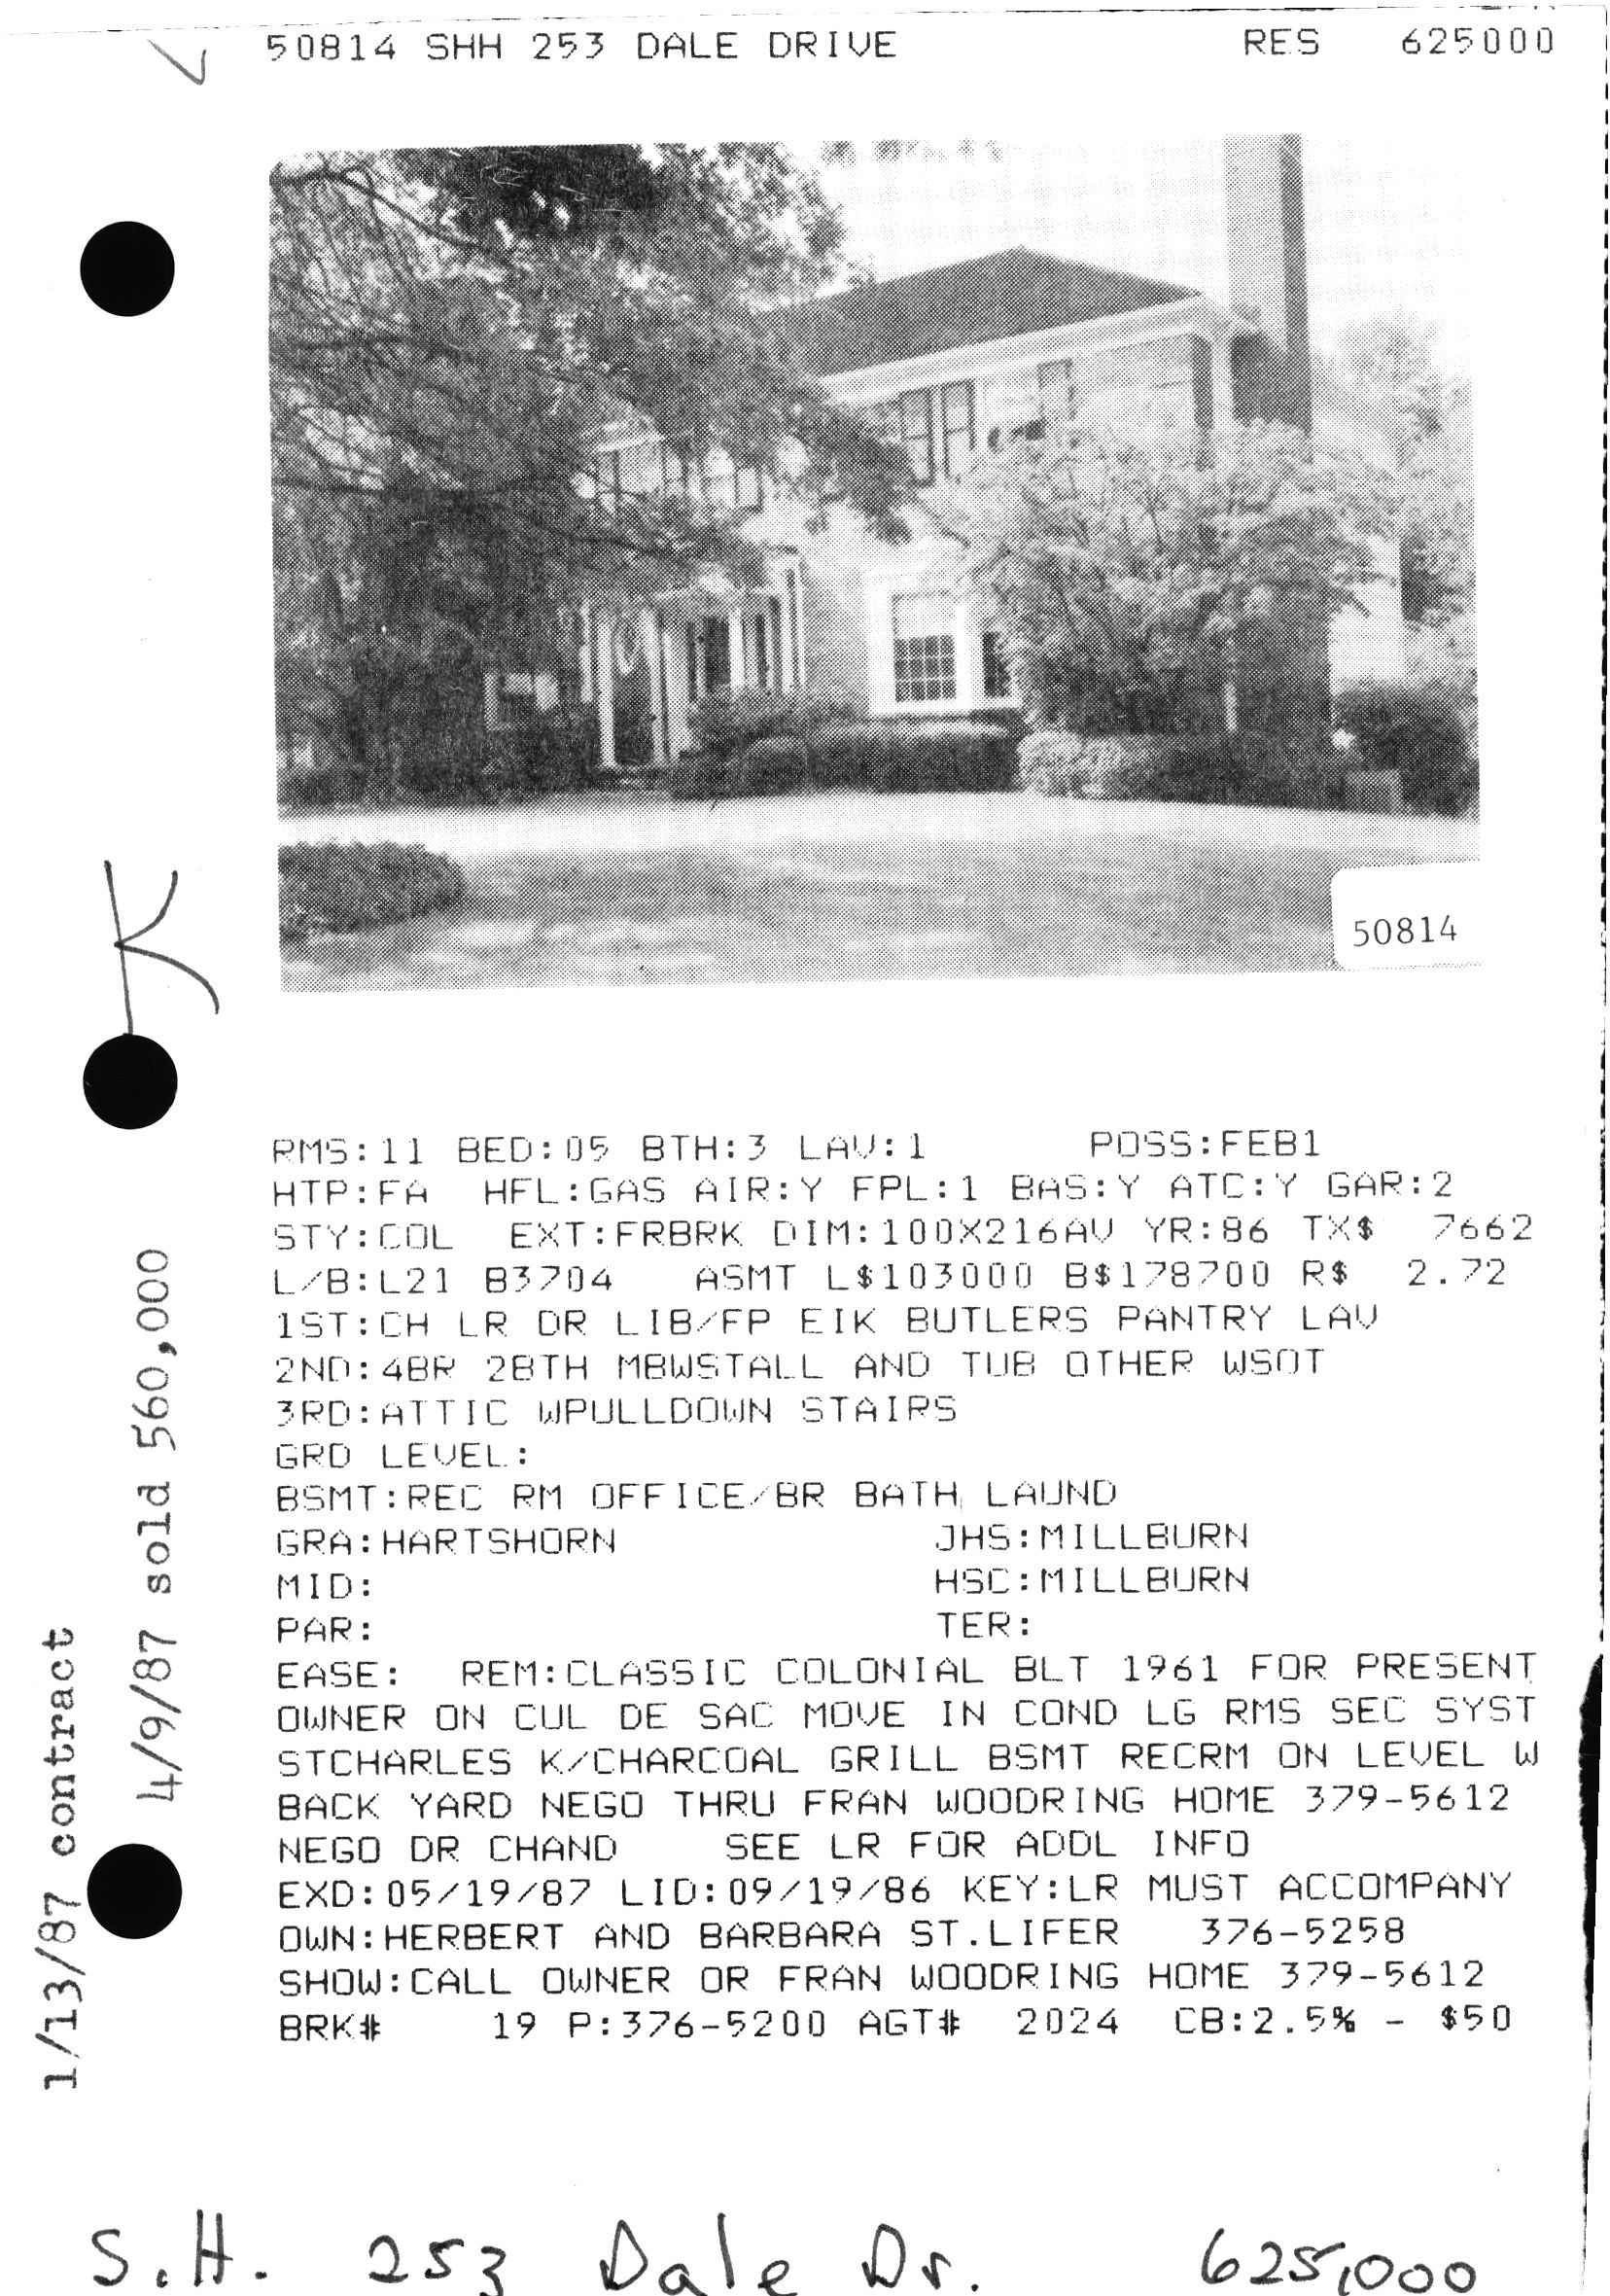 50814 SHH 253 DALE DRIVE RES 625000
50814
K
RMS:11 BED:05 BTH:3 LAV:1 POSS:FEB1
HTP:FA HFL:GAS AIR:Y FPL:1 BAS:Y ATC:Y GAR:2
STY:COL EXT:FRBRK DIM:100X216AV YR:86 TX$ 7662
L/B:L21 B3704 ASMT L$103000 B$178700 R$ 2.72
1ST:CH LR DR LIB/FP EIK BUTLERS PANTRY LAV
2ND:4BR 2BTH MBWSTALL AND TUB OTHER WSOT
3RD:ATTIC WPULLDOWN STAIRS
GRD LEVEL:
BSMT:REC RM OFFICE/BR BATH LAUND
GRA:HARTSHORN JHS:MILLBURN
MID: HSC:MILLBURN
PAR: TER:
EASE: REM:CLASSIC COLONIAL BLT 1961 FOR PRESENT
OWNER ON CUL DE SAC MOVE IN COND LG RMS SEC SYST
STCHARLES K/CHARCOAL GRILL BSMT RECRM ON LEVEL W
BACK YARD NEGO THRU FRAN WOODRING HOME 379-5612
NEGO DR CHAND SEE LR FOR ADDL INFO
EXD:05/19/87 LID:09/19/86 KEY:LR MUST ACCOMPANY
OWN:HERBERT AND BARBARA ST.LIFER 376-5258
SHOW:CALL OWNER OR FRAN WOODRING HOME 379-5612
BRK# 19 P:376-5200 AGT# 2024 CB:2.5% - $50
1/13/87 contract
4/9/87 sold 560,000
S.H. 253 Dale Dr. 625,000